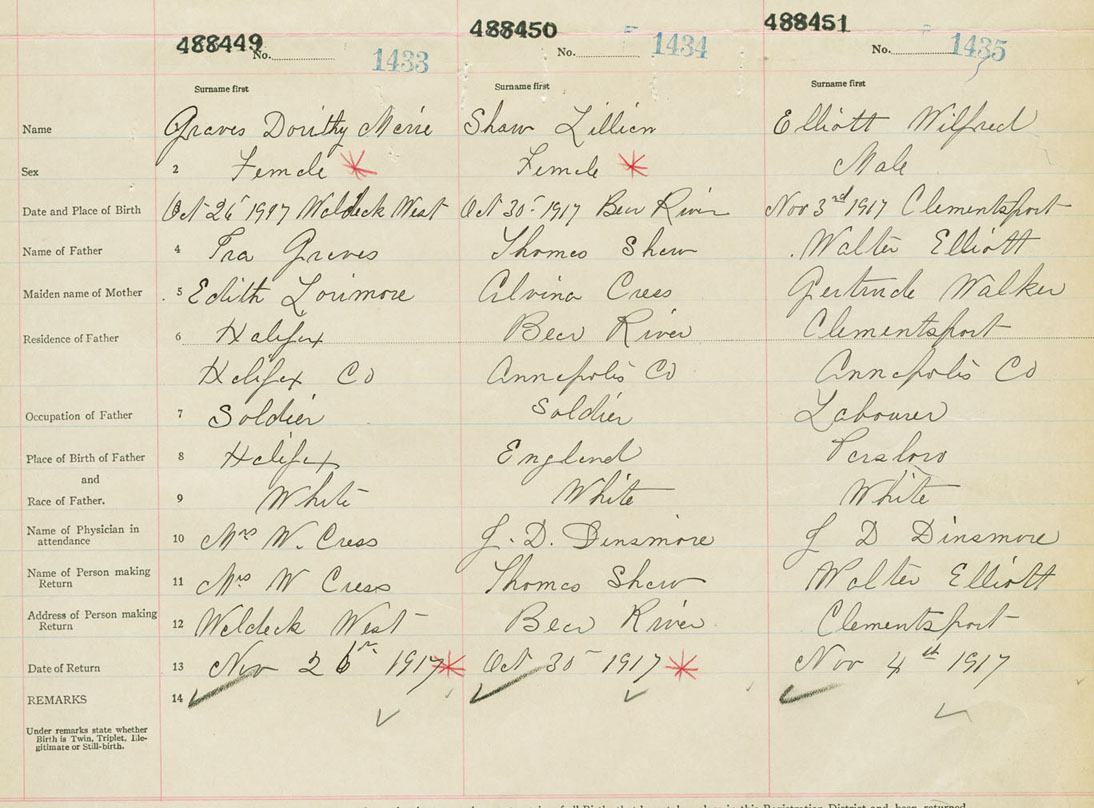 488449 488450 488451
No. 1433 No. 1434 No. 1435
Surname first Surname first Surname first
Name Graves Dorithy Merie Shaw Lillian Elliott Wilfred
Sex 2 Female Female Male
Date and Place of Birth Oct 26 1917 Waldeck West Oct 30 1917 Bear River Nov 3rd 1917 Clementsport
Name of Father 4 Ira Graves Thomas Shaw Walter Elliott
Maiden name of Mother 5 Edith Lorimore Alvina Cress Gertrude Walker
Residence of Father 6 Halifax Bear River Clementsport
Halifax Co Annapolis Co Annapolis Co
Occupation of Father 7 Soldier Soldier Labourer
Place of Birth of Father 8 Halifax England
and
Race of Father. 9 White White White
Name of Physician in
attendance 10 Mrs W. Cress J. D. Dinsmore J D Dinsmore
Name of Person making
Return 11 Mrs W Cress Thomas Shaw Walter Elliott
Address of Person making
Return 12 Waldeck West Bear River Clementsport
Date of Return 13 Nov 26 1917 Oct 30 1917 Nov 4th 1917
REMARKS 14
Under remarks state whether
Birth is Twin, Triplet, Ille-
gitimate or Still-birth.